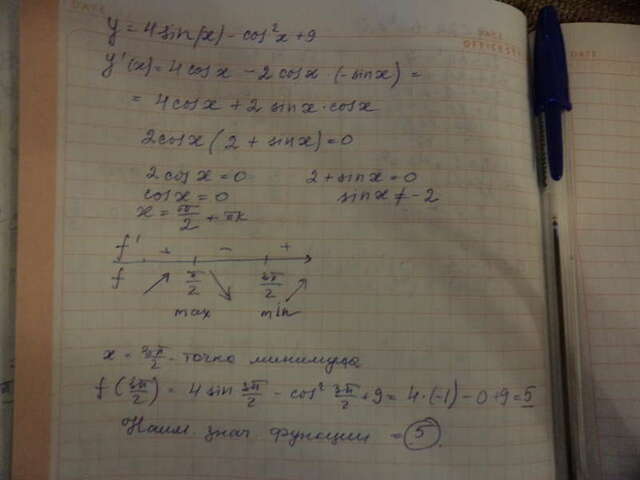 DATE
DATE
DATE
y = 4 sin(x) - cos²x + 9
y'(x) = 4 cosx - 2 cosx (-sinx) =
= 4 cosx + 2 sinx · cosx
2cosx (2 + sinx) = 0
2 cosx = 0 2 + sinx = 0
cosx = 0 sinx ≠ -2
x = π/2 + πk
f' + - +
f π/2 3π/2
max min
x = 3π/2 - точка минимума
f(3π/2) = 4 sin 3π/2 - cos² 3π/2 + 9 = 4·(-1) - 0 + 9 = 5
Наим. знач. функции = 5